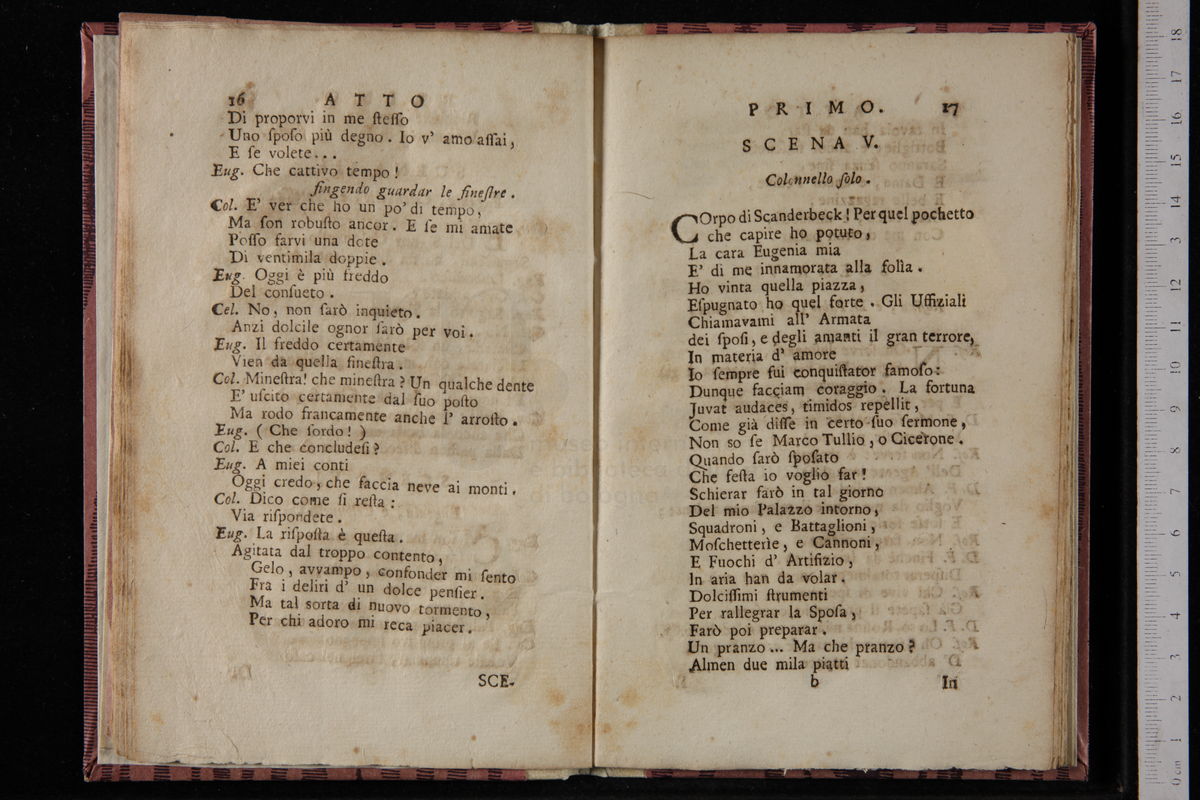 16 ATTO
Di proporvi in me ſteſſo
Uno ſpoſo più degno. Io v' amo aſſai,
E ſe volete...
Eug. Che cattivo tempo!
fingendo guardar le fineſtre.
Col. E' ver che ho un po' di tempo,
Ma ſon robuſto ancor. E ſe mi amate
Poſſo farvi una dote
Di ventimila doppie.
Eug. Oggi è più freddo
Del conſueto.
Col. No, non ſarò inquieto.
Anzi dolcile ognor ſarò per voi.
Eug. Il freddo certamente
Vien da quella fineſtra.
Col. Mineſtra! che mineſtra? Un qualche dente
E' uſcito certamente dal ſuo poſto
Ma rodo francamente anche l' arroſto.
Eug. (Che ſordo!)
Col. E che concludeſi?
Eug. A miei conti
Oggi credo, che faccia neve ai monti.
Col. Dico come ſi reſta:
Via riſpondete.
Eug. La riſpoſta è queſta.
Agitata dal troppo contento,
Gelo, avvampo, confonder mi ſento
Fra i deliri d' un dolce penſier.
Ma tal sorta di nuovo tormento,
Per chi adoro mi reca piacer.
SCE-
PRIMO. 17
SCENA V.
Colonnello ſolo.
COrpo di Scanderbeck! Per quel pochetto
che capire ho potuto,
La cara Eugenia mia
E' di me innamorata alla folìa.
Ho vinta quella piazza,
Eſpugnato ho quel forte. Gli Uffiziali
Chiamavami all' Armata
dei ſpoſi, e degli amanti il gran terrore,
In materia d' amore
Io ſempre fui conquiſtator famoſo:
Dunque facciam coraggio. La fortuna
Juvat audaces, timidos repellit,
Come già diſſe in certo ſuo ſermone,
Non so ſe Marco Tullio, o Cicerone.
Quando ſarò ſpoſato
Che feſta io voglio far!
Schierar farò in tal giorno
Del mio Palazzo intorno,
Squadroni, e Battaglioni,
Moſchetterìe, e Cannoni,
E Fuochi d' Artifizio,
In aria han da volar.
Dolciſſimi ſtrumenti
Per rallegrar la Spoſa,
Farò poi preparar.
Un pranzo... Ma che pranzo?
Almen due mila piatti
b In